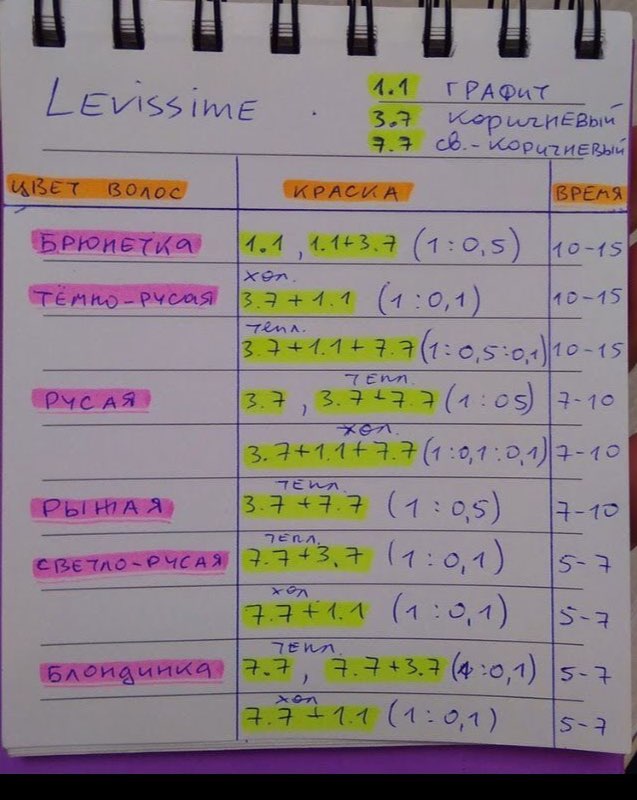 LEVISSIME
1.1 ГРАФИТ
3.7 КОРИЧНЕВЫЙ
7.7 СВ.-КОРИЧНЕВЫЙ
ЦВЕТ ВОЛОС КРАСКА ВРЕМЯ
БРЮНЕТКА 1.1, 1.1+3.7 (1:0,5) 10-15
хол.
ТЁМНО-РУСАЯ 3.7+1.1 (1:0,1) 10-15
тепл.
3.7+1.1+7.7 (1:0,5:0,1) 10-15
тепл.
РУСАЯ 3.7, 3.7+7.7 (1:05) 7-10
хол.
3.7+1.1+7.7 (1:0,1:0,1) 7-10
тепл.
РЫЖАЯ 3.7+7.7 (1:0,5) 7-10
тепл.
СВЕТЛО-РУСАЯ 7.7+3.7 (1:0,1) 5-7
хол
7.7+1.1 (1:0,1) 5-7
тепл.
БЛОНДИНКА 7.7, 7.7+3.7 (1:0,1) 5-7
хол
7.7+1.1 (1:0,1) 5-7